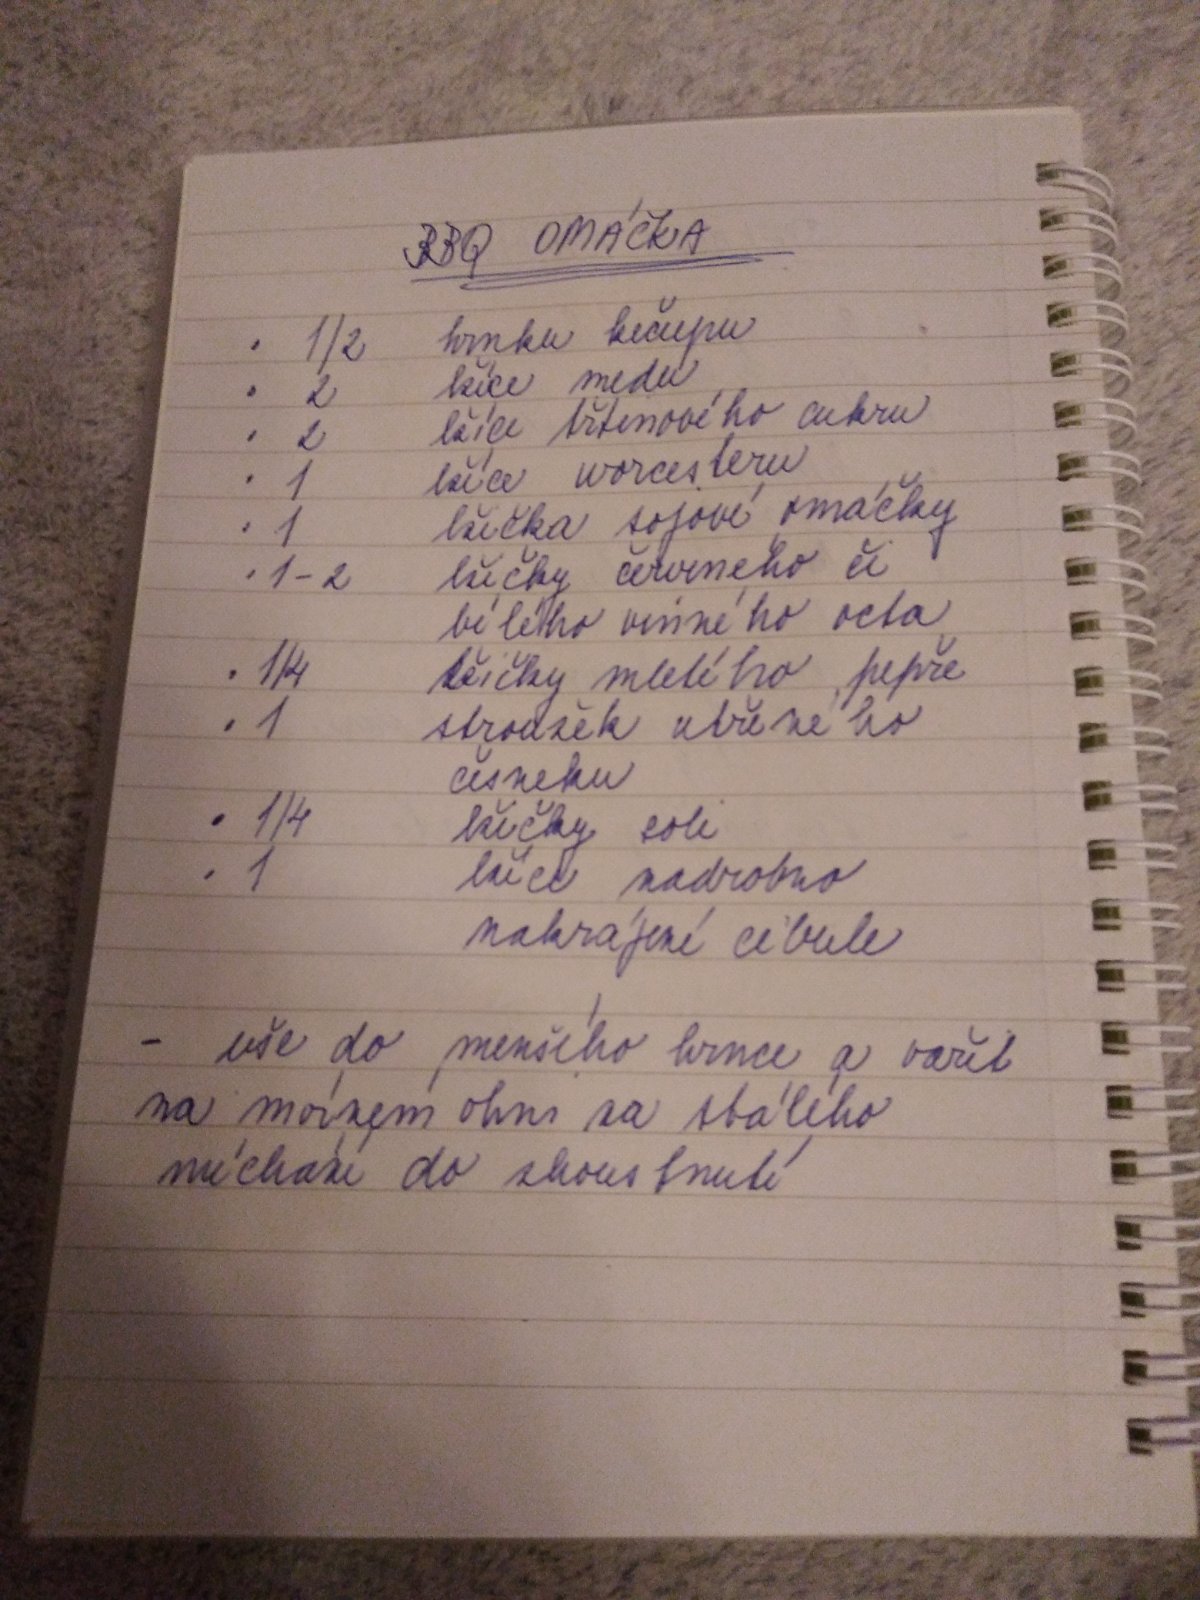 BBQ OMÁČKA
• 1/2 hrnku kečupu
• 2 lžíce medu
• 2 lžíce třtinového cukru
• 1 lžíce worcesteru
• 1 lžička sojové omáčky
• 1-2 lžičky červeného či
bílého vinného octa
• 1/4 lžičky mletého pepře
• 1 stroužek utřeného
česneku
• 1/4 lžičky soli
• 1 lžíce nadrobno
nakrájené cibule
- vše do menšího hrnce a vařit
na mírném ohni za stálého
míchání do zhoustnutí